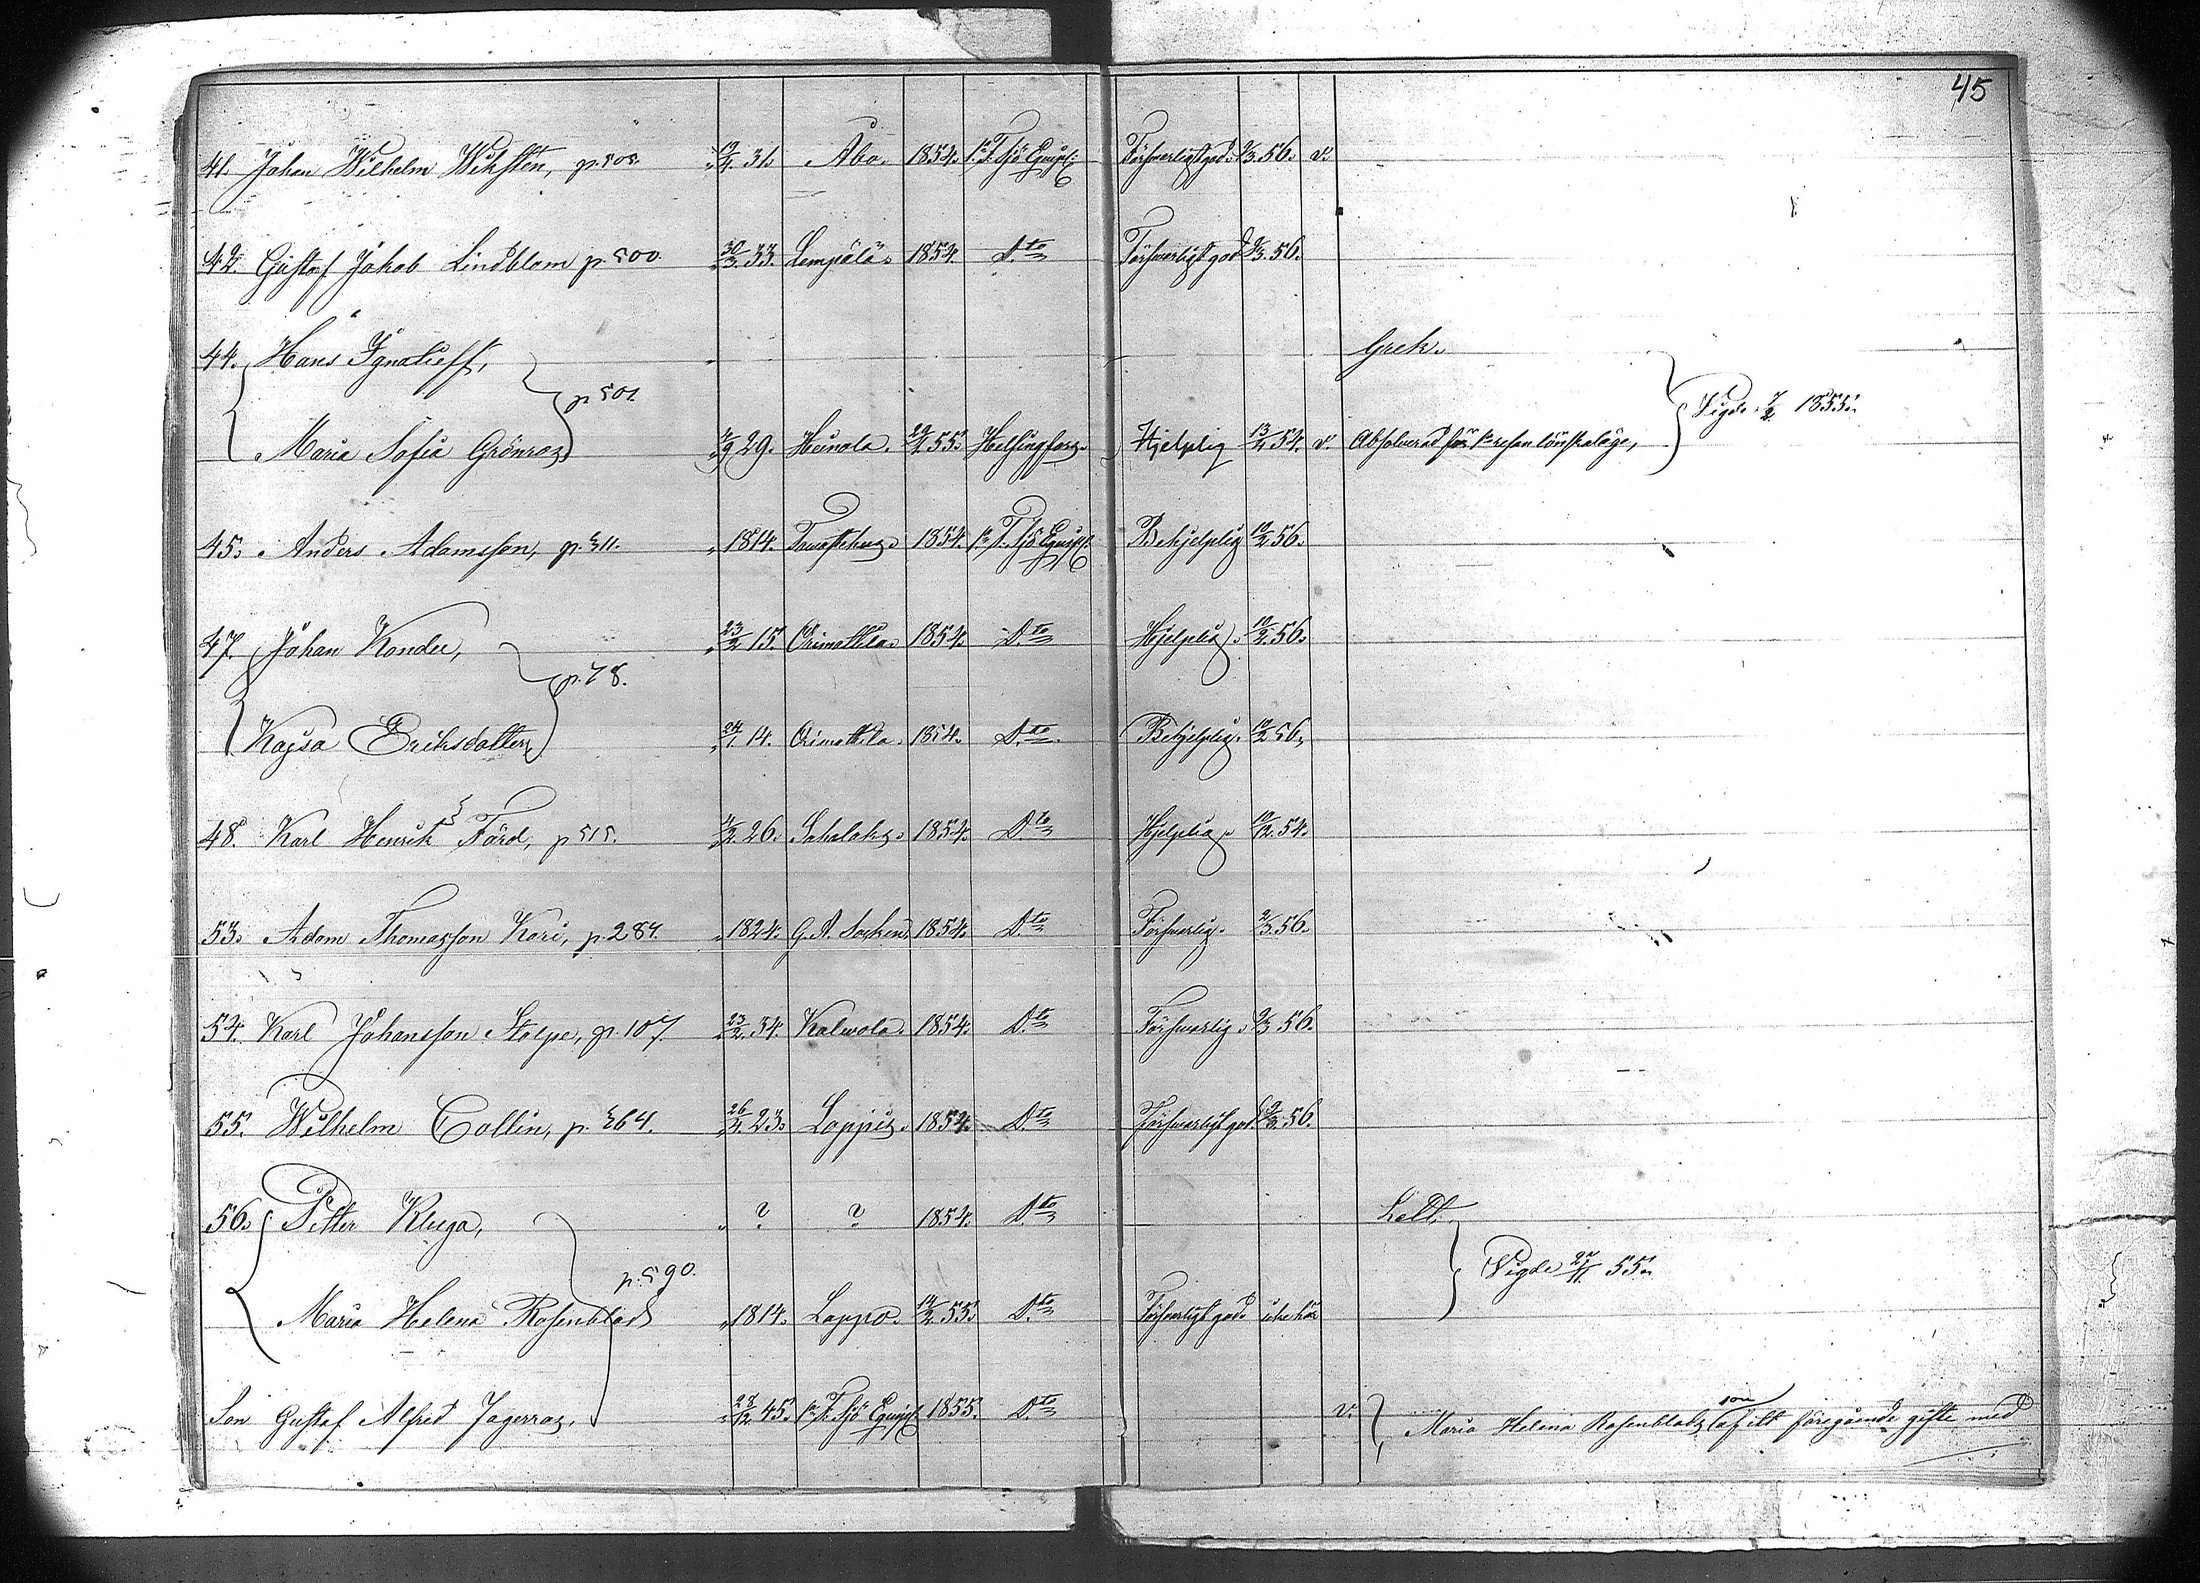 45
41. Johan Wilhelm Wiksten, p. 505. 31 Åbo. 1854. 1:a F. Sjö Equip: Försvarligt god. 56. v.
42. Gustaf Jakob Lindblom p. 500. 30/3. 33. Lempälä. 1854. D:to Försvarligt god 56.
44. Hans Ignatieff, Grek.
p. 501. Vigde 1855.
Maria Sofia Grönroos 29. Heinola. 55. Helsingfors. Hjelplig 54. v. Absolverad för 1:a resan lönskaläge,
45. Anders Adamsson, p. 511. 1814. Tawastehus. 1854. 1:a F. Sjö Equip: Behjelplig 56.
47. Johan Konder, 23/2 15. Orimattila. 1854. D:to Hjelplig. 56.
p. 78.
Kajsa Eriksdotter 24/1. 14. Orimattila. 1854. D:to Behjelplig. 56.
48. Karl Henrik Färd, p 515. 26. Sahalaks. 1854. D:to Hjelplig. 54.
53. Adam Thomasson Kari, p. 284. 1824. 1854. D:to Försvarlig. 56.
54. Karl Johansson Stolpe, p. 107. 23/2. 34. Kalwola. 1854. D:to Försvarlig. 56.
55. Wilhelm Collin, p. 564. 26/4. 23. Loppis. 1854. D:to Försvarligt god 56.
56. Petter Kluga, ? ? 1854. D:to
p. 590. Vigde 27/11. 55.
Maria Helena Rosenblad 1814. Lappo. 14/2 55. D:to Försvarligt god. icke här
Son Gustaf Alfred Jagerroos, 28/12 45. 1:a F. Sjö Equip: 1855. D:to v. Maria Helena Rosenblads son af ett föregående gifte med